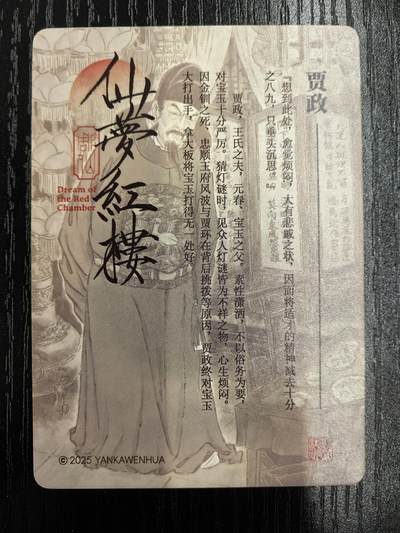 贾政
“想到此处，愈觉烦闷，大有悲戚之状，因而将适才的精神减去十分
之八九，只垂头沉思。”
贾政，王氏之夫，元春、宝玉之父。素性潇洒，不以俗务为要，
对宝玉十分严厉。猜灯谜时，见众人灯谜皆为不祥之物，心生烦闷。
因金钏之死、忠顺王府风波与贾环在背后挑拨等原因，贾政终对宝玉
大打出手，拿大板将宝玉打得无一处好
仙夢紅樓
Dream of
the Red
Chamber
© 2025 YANKAWENHUA